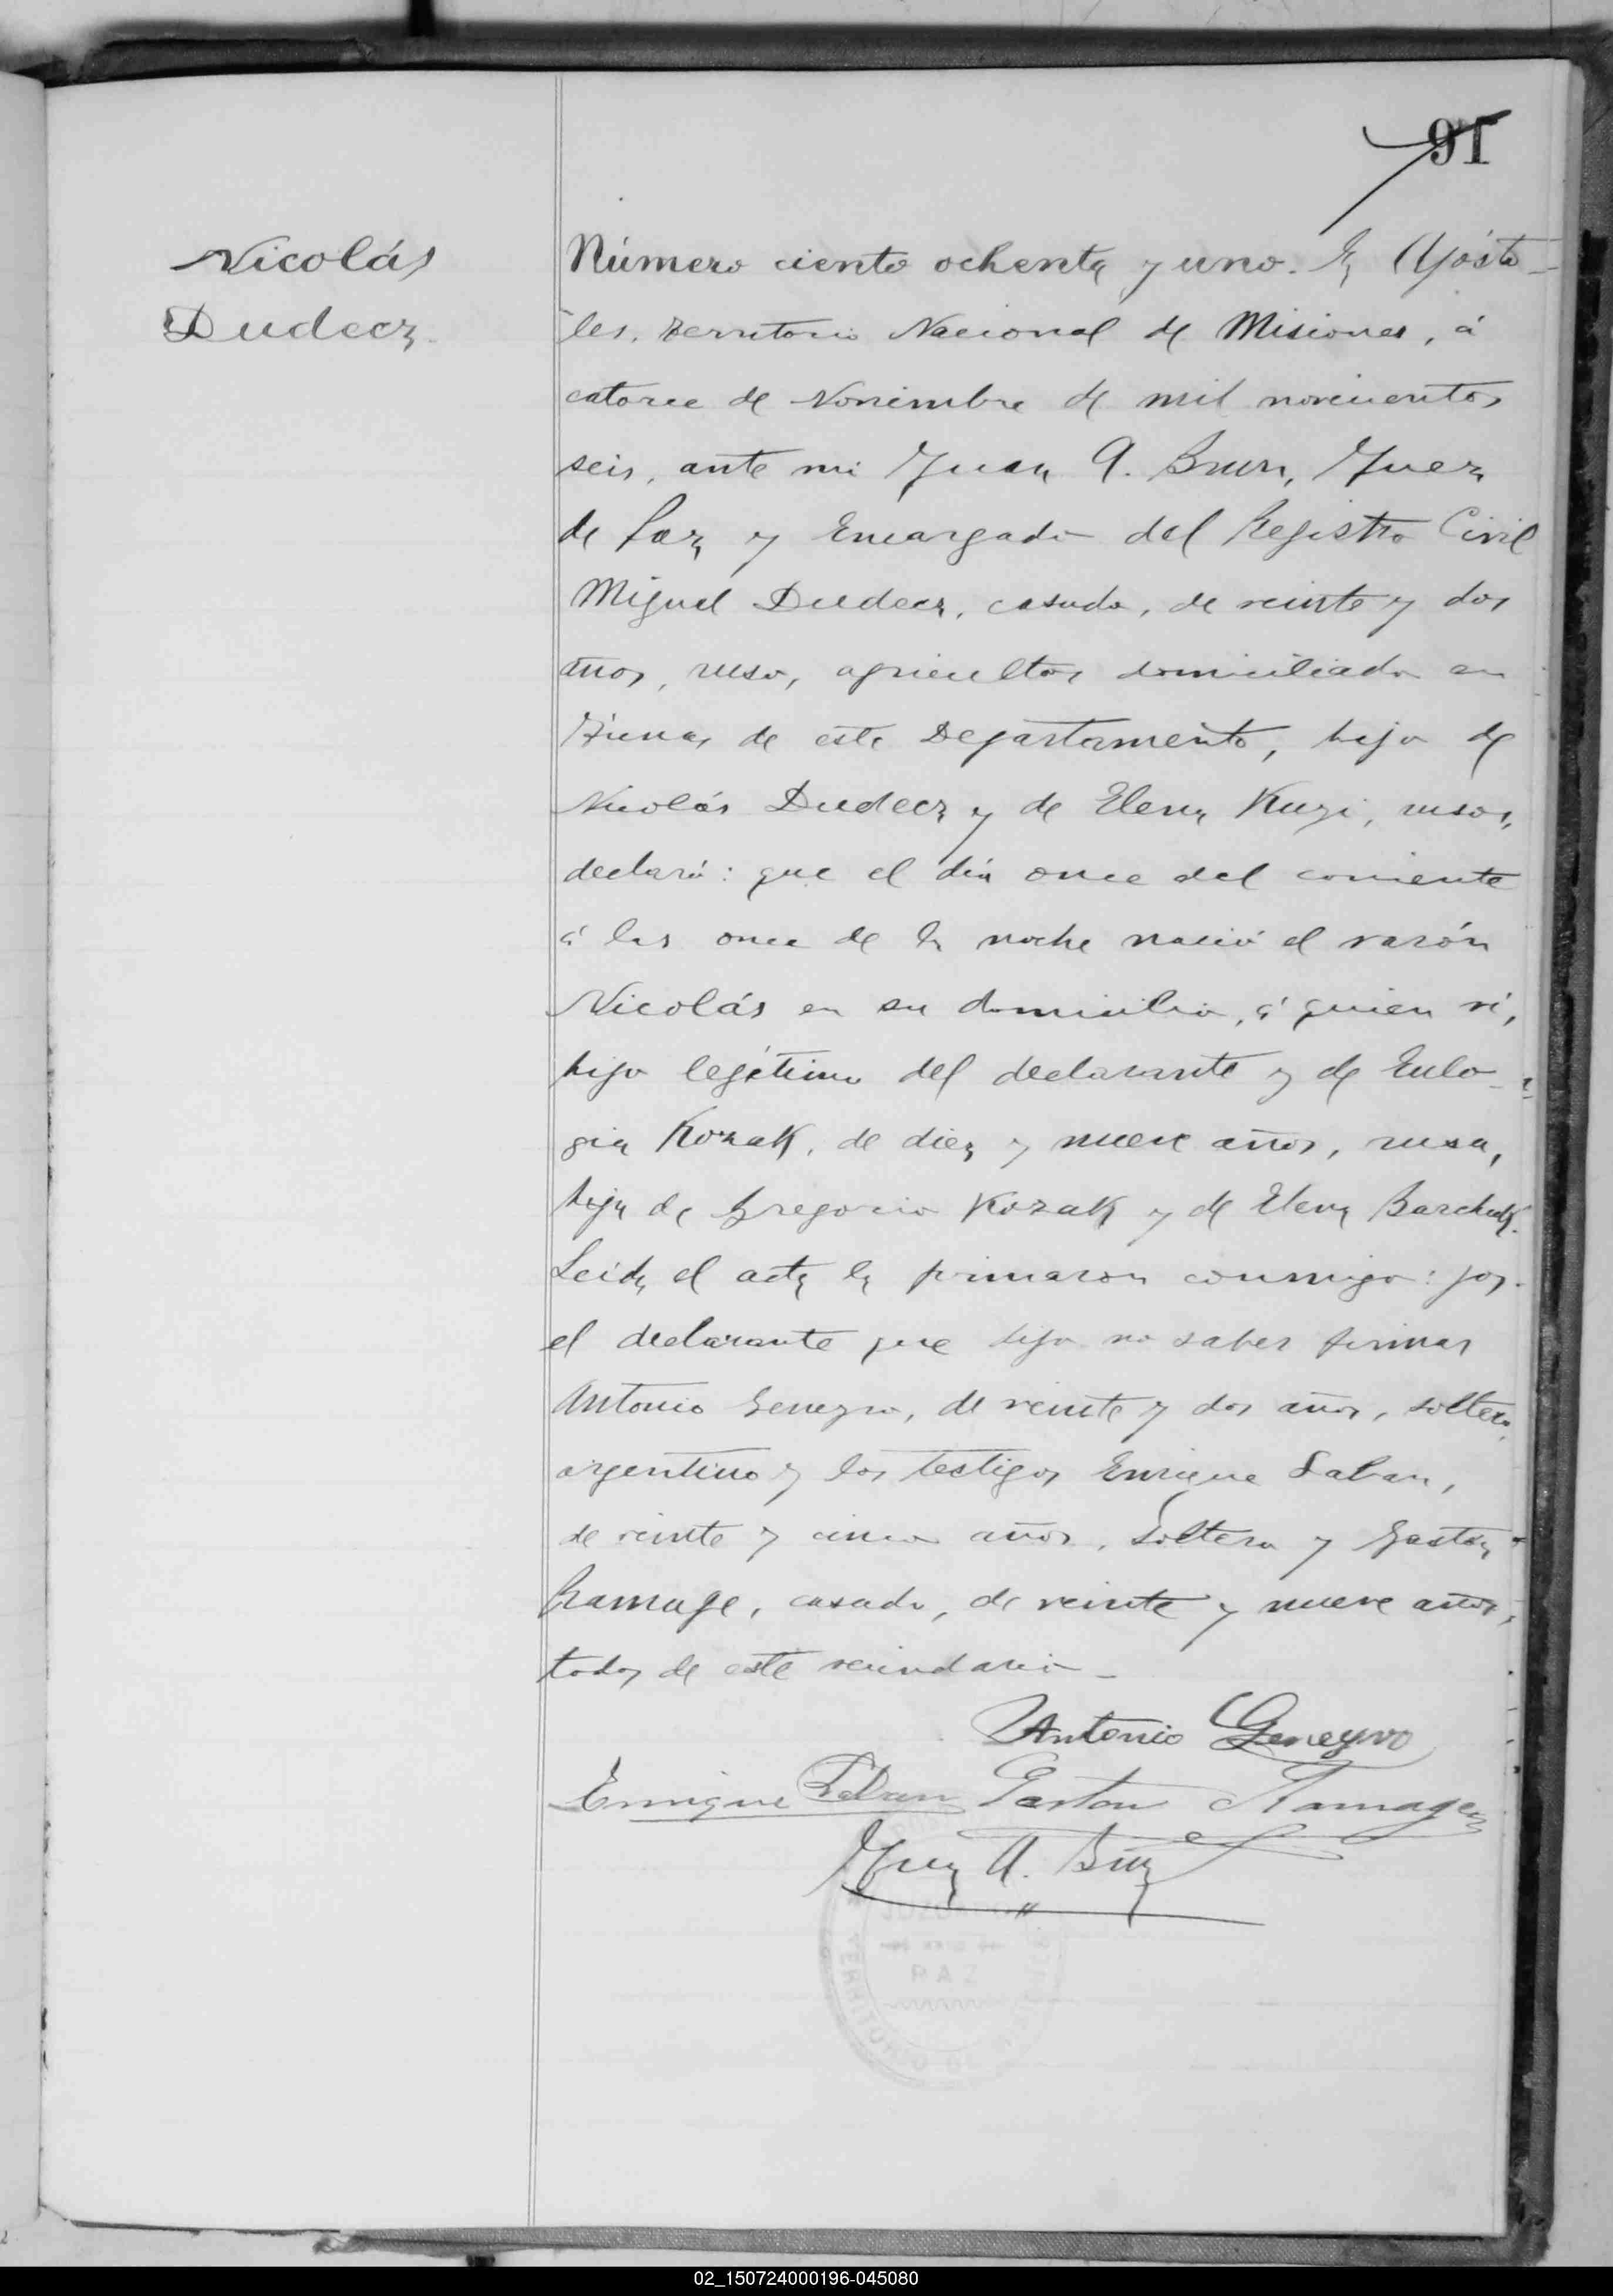 91
Nicolás
Dudecz.
Número ciento ochenta y uno. En Apósto-
les, territorio Nacional de Misiones, á
catorce de Noviembre de mil novecientos
seis, ante mi Juan A. Brun, Juez
de Paz y Encargado del Registro Civil
Miguel Dudecz, casado, de veinte y dos
años, ruso, agricultor domiciliado en
de este Departamento, hijo de
Nicolás Dudecz y de Elena Kuzi, rusos,
declaró: que el día once del corriente
á las once de la noche nació el varón
Nicolás en su domicilio, á quien ví,
hijo legítimo del declarante y de Eulo-
gia Kozak, de diez y nueve años, rusa,
hija de Gregorio Kozak y de Elena Barchuk.
Leida el acta la firmaron conmigo: por
el declarante que dijo no saber firmar
Antonio Geneyro, de veinte y dos años, soltero,
argentino y los testigos Enrique Laban,
de veinte y cinco años, soltero y Gastón
Ramage, casado, de veinte y nueve años,
todos de este vecindario-
Antonio Geneyro
Enrique Laban Gaston Ramage
Juan A. Brun
PAZ
TERRITORIO
02_150724000196-045080